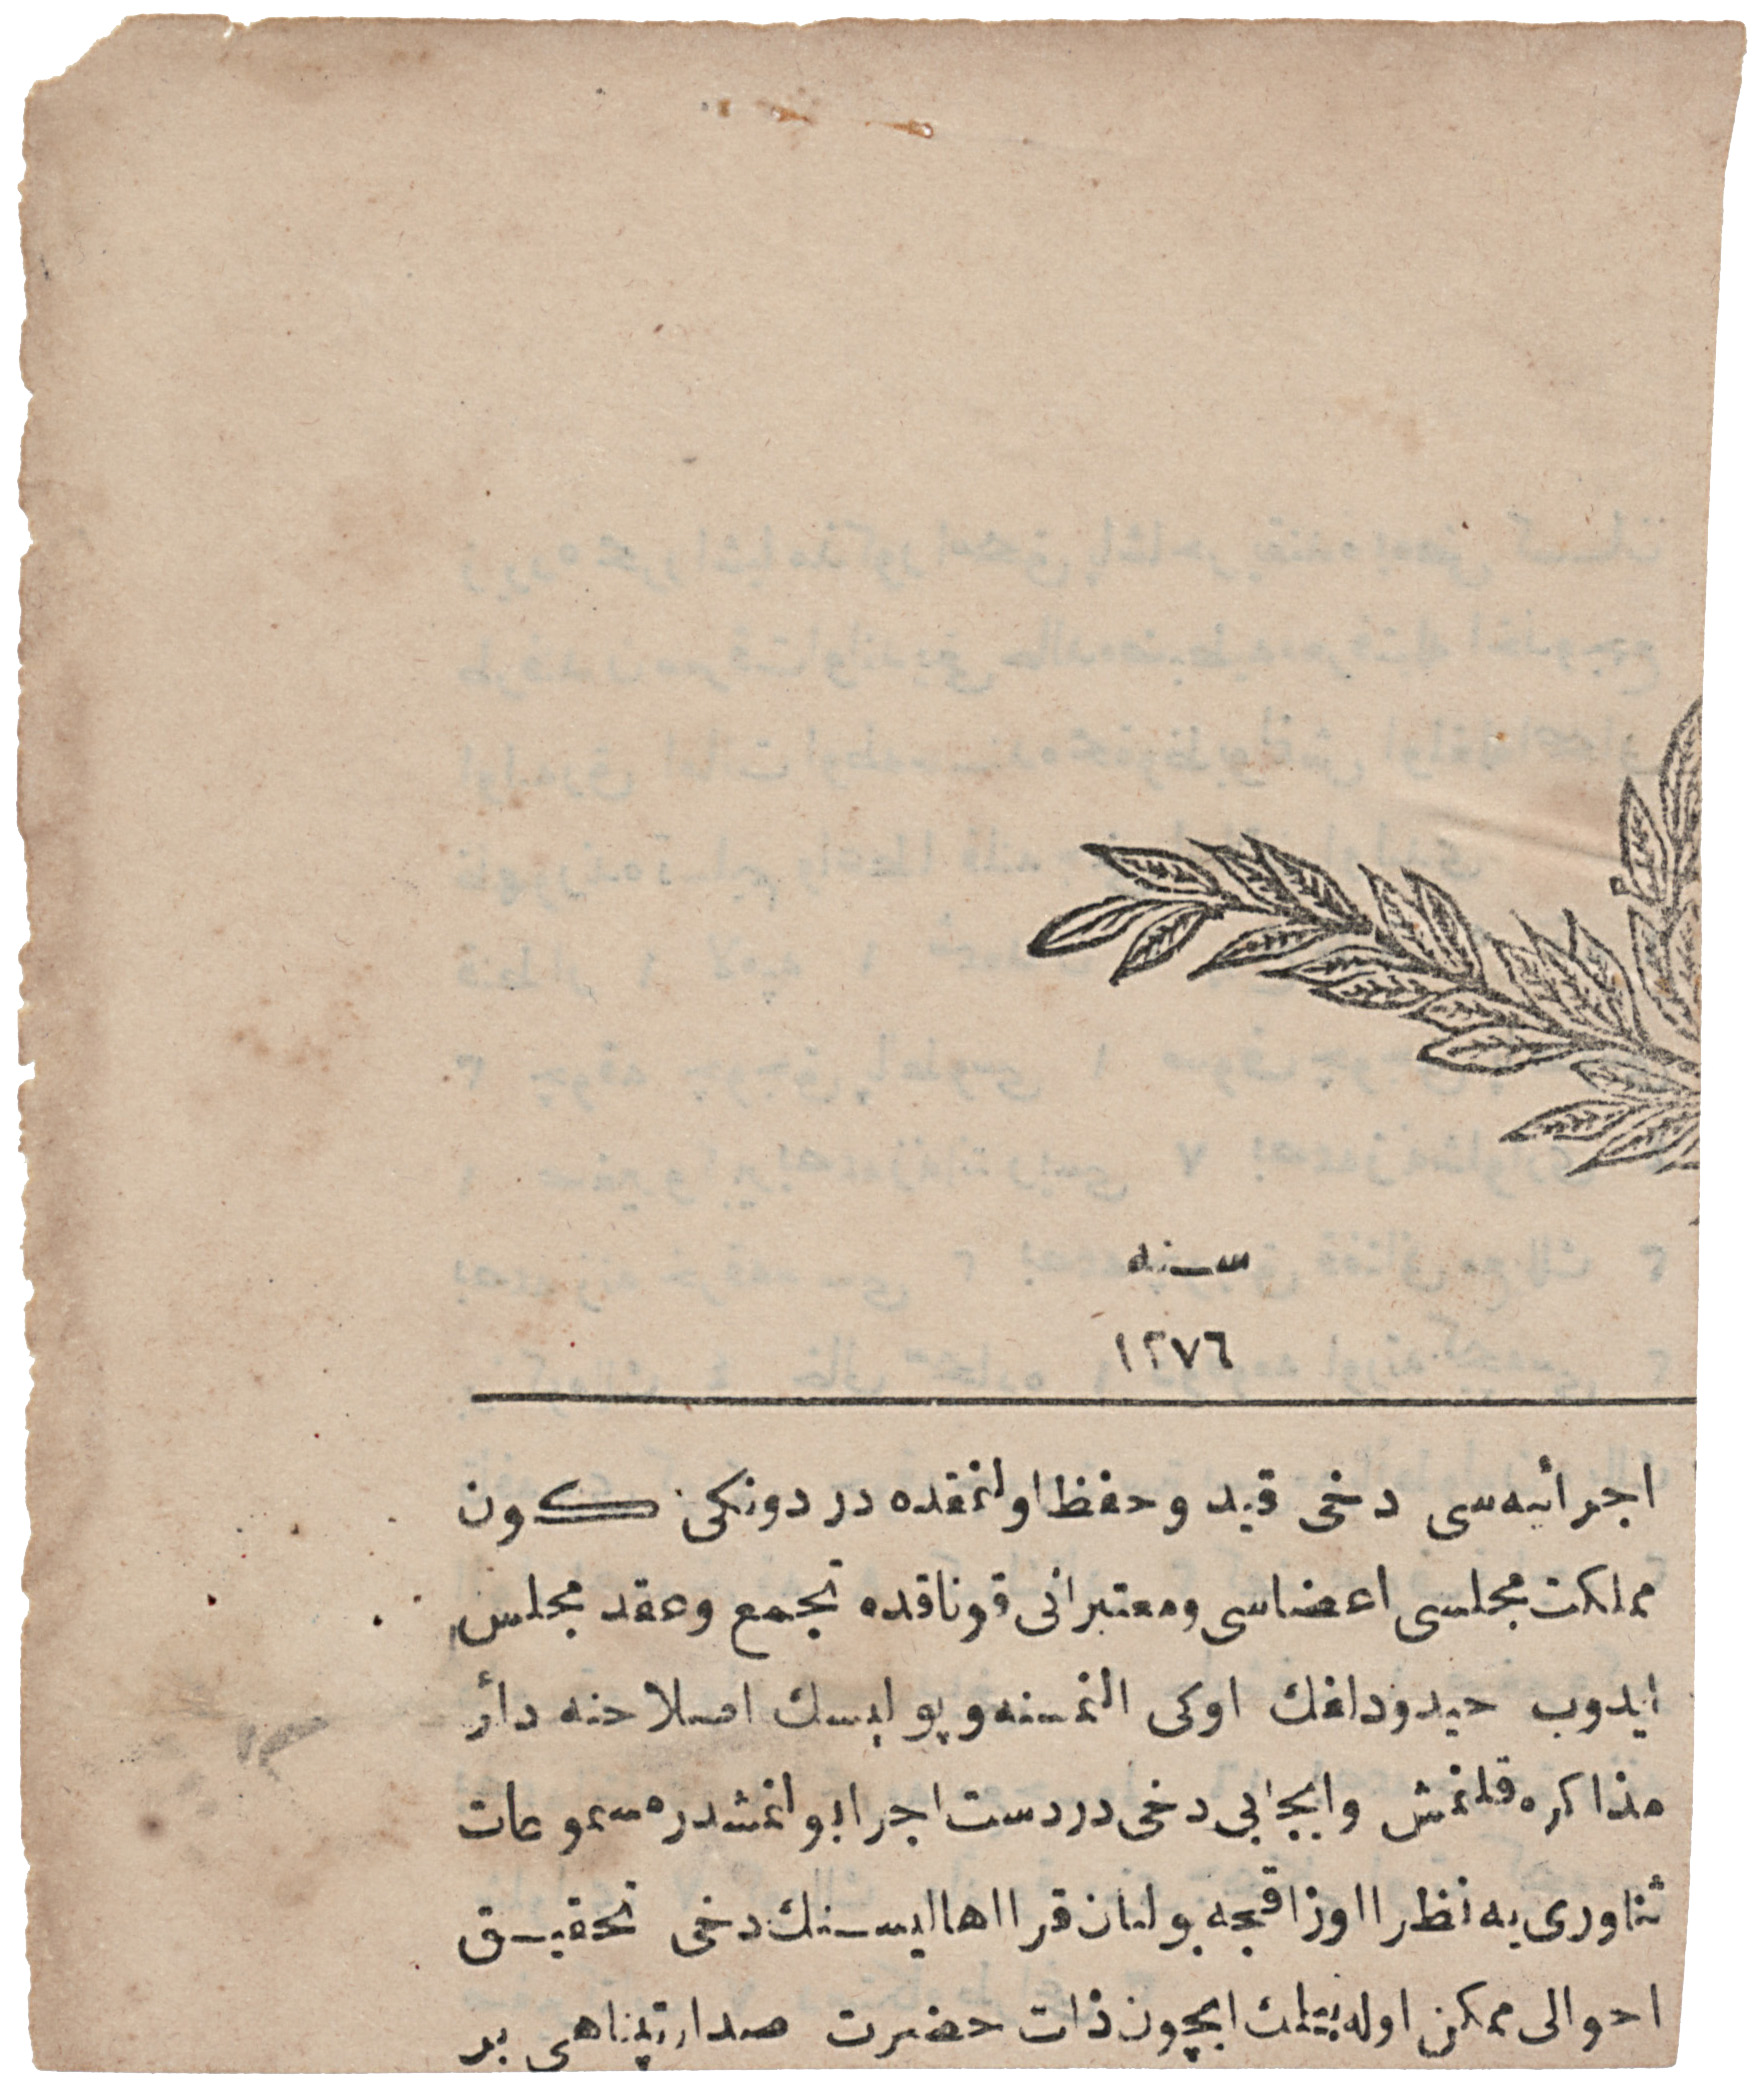 سنه
١٢٧٦
اجرائیه‌سی دخی قید و حفظ اولنمقده در دونکی کون
مملکت مجلسی اعضاسی ومعتبرانی قوناقده تجمع وعقد مجلس
ایدوب حیدودلغك اوکی النمسنه و پولیسك اصلاحنه دائر
مذاکره قلنمش وایجابی دخی دردست اجرا بولنمشدر مسموعات
ثناوری یه نظرا اوزاقجه بولنان قرا اهالیسنك دخی تحقیق
احوالی ممکن اوله بیلمك ایچون ذات حضرت صدارتپناهی بر